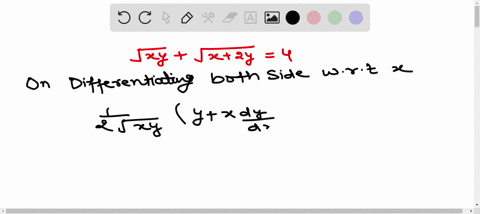 √xy + √x+2y = 4
On Differentiating both side w.r.t x
1/2√xy (y + x dy/dx